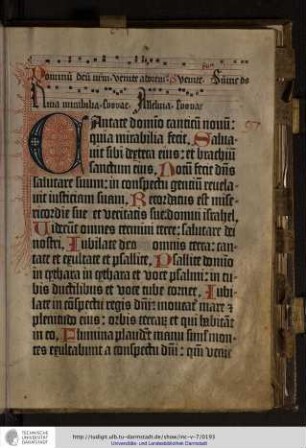 Dominum deū nrm̄ venite adorem⁹ p̄s Venite
mirabilia Euouae Alleluia Euouae
CAntate domino canticū novū:
quia mirabilia fecit. Salua-
uit sibi dextera eius: et brachiū
sanctum eius. Notū fecit dn̄s
salutare suum: in conspectu gentiū reuela-
uit iusticiam suam. Recordatus est mise-
ricordie sue et veritatis sue: domui israhel.
Viderūt omnes termini terre: salutare dei
nostri. Iubilate deo omnis terra: can-
tate et exultate et psallite. Psallite domino
in cythara in cythara et voce psalmi: in tu-
bis ductilibus et voce tube cornee. Iubi-
late in cōspectu regis dn̄i: moueat̄ mare et
plenitudo eius: orbis terraꝝ et qui habitāt
in eo. Flumina plaudēt manu simł mon-
tes exultabunt a conspectu dn̄i: qm̄ venit
TECHNISCHE
UNIVERSITÄT
DARMSTADT
http://tudigit.ulb.tu-darmstadt.de/show/inc-v-7/0193
Universitäts- und Landesbibliothek Darmstadt